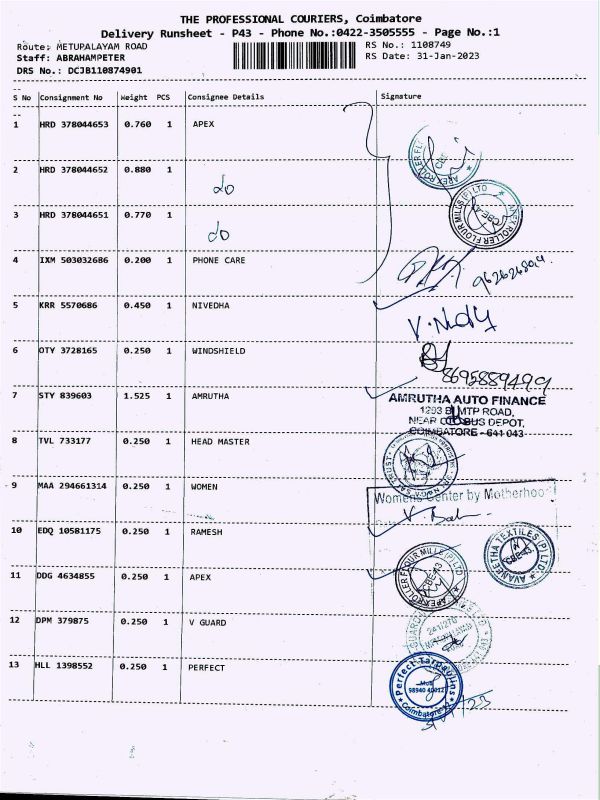 THE PROFESSIONAL COURIERS, Coimbatore
Delivery Runsheet - P43 - Phone No.:0422-3505555 - Page No.:1
Route: METUPALAYAM ROAD
RS No.: 1108749
Staff: ABRAHAMPETER
RS Date: 31-Jan-2023
DRS No.: DCJB110874901
S No Consignment No Weight PCS Consignee Details Signature
1 HRD 378044653 0.760 1 APEX
2 HRD 378044652 0.880 1
do
3 HRD 378044651 0.770 1
do
APEX ROLLER FLOUR MILLS (P) LTD CBE-43
4 IXM 503032686 0.200 1 PHONE CARE
5 KRR 5570686 0.450 1 NIVEDHA
6 OTY 3728165 0.250 1 WINDSHIELD
8695889499
7 STY 839603 1.525 1 AMRUTHA
AMRUTHA AUTO FINANCE
1293 B, MTP ROAD,
NEAR BUS DEPOT,
COIMBATORE - 641 043
8 TVL 733177 0.250 1 HEAD MASTER
9 MAA 294661314 0.250 1 WOMEN
Womens Center by Motherhood
10 EDQ 10581175 0.250 1 RAMESH
AVANEETHA TEXTILES (P) LTD. CBE-43
11 DDG 4634855 0.250 1 APEX
APEX ROLLER FLOUR MILLS (P) LTD CBE-43
12 DPM 379875 0.250 1 V GUARD
13 HLL 1398552 0.250 1 PERFECT
Perfect Tarpaulins
Coimbatore